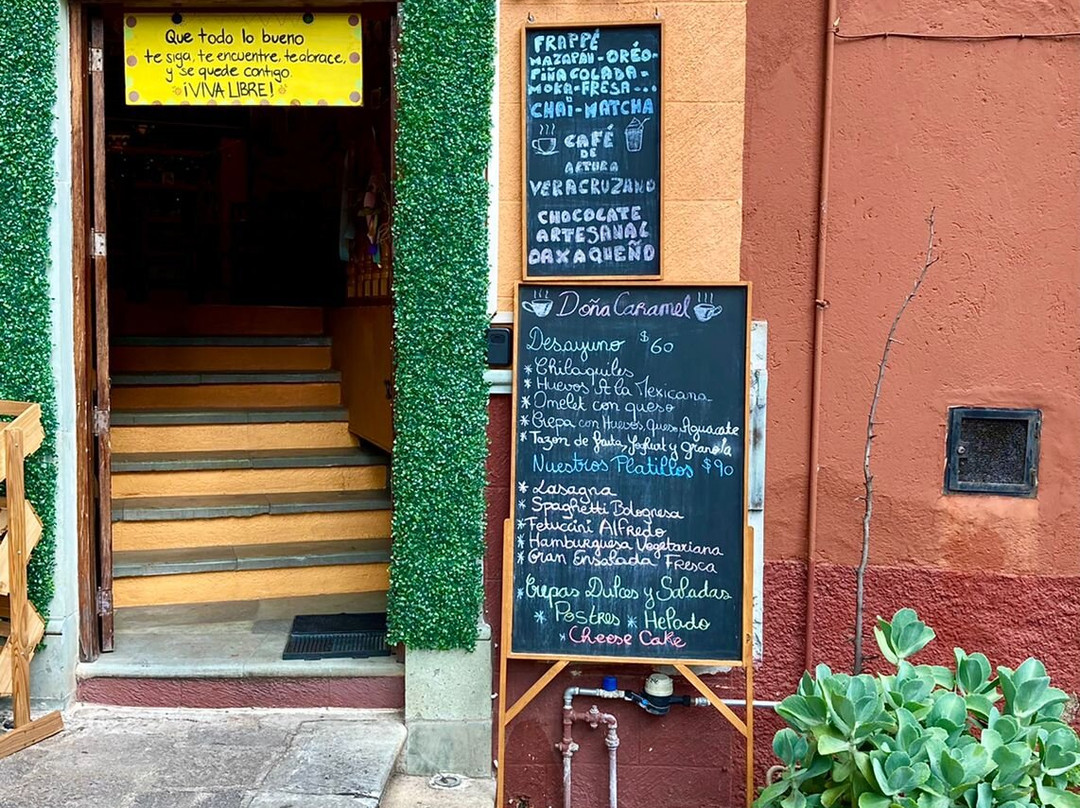 Que todo lo bueno
te siga, te encuentre, te abrace,
y se quede contigo.
¡VIVA LIBRE!
FRAPPÉ
MAZAPÁN-OREO-
PIÑA COLADA-
MOKA-FRESA-...
CHAI-MATCHA
CAFÉ
DE
ALTURA
VERACRUZANO
CHOCOLATE
ARTESANAL
OAXAQUEÑO
Doña Caramel
Desayuno $60
* Chilaquiles
* Huevos A la Mexicana
* Omelet con queso
* Crepa con Huevos, Queso, Aguacate
* Tazón de fruta, Yoghurt y granola
Nuestros Platillos $90
* Lasagna
* Spaghetti Bolognesa
* Fetuccini Alfredo
* Hamburguesa Vegetariana
* Gran Ensalada Fresca
* Crepas Dulces y Saladas
* Postres * Helado
* Cheese Cake